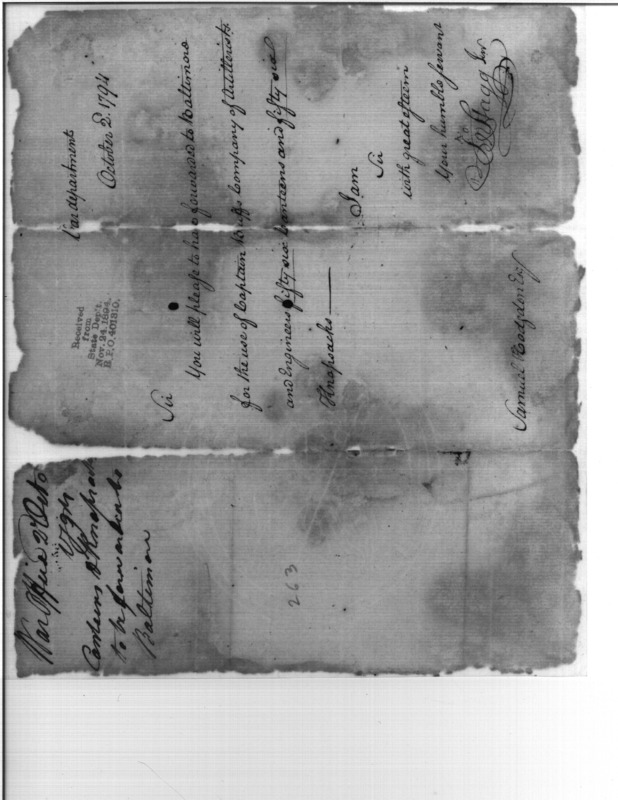 War department
October 2. 1794
Received
from
State Dep't.
Nov. 24, 1894.
R.P.O. 401310.
Sir
You will please to have forwarded to Baltimore
for the use of Captain Bruffs Company of Artillerists
and Engineers fifty six Canteens and fifty six
Knapsacks
I am
Sir
with great esteem
Your humble servant
Jno Stagg Jnr
Samuel Hodgdon Esqr
War Office 2 Octo
1794
Canteens & Knapsacks
to be forwarded to
Baltimore
263